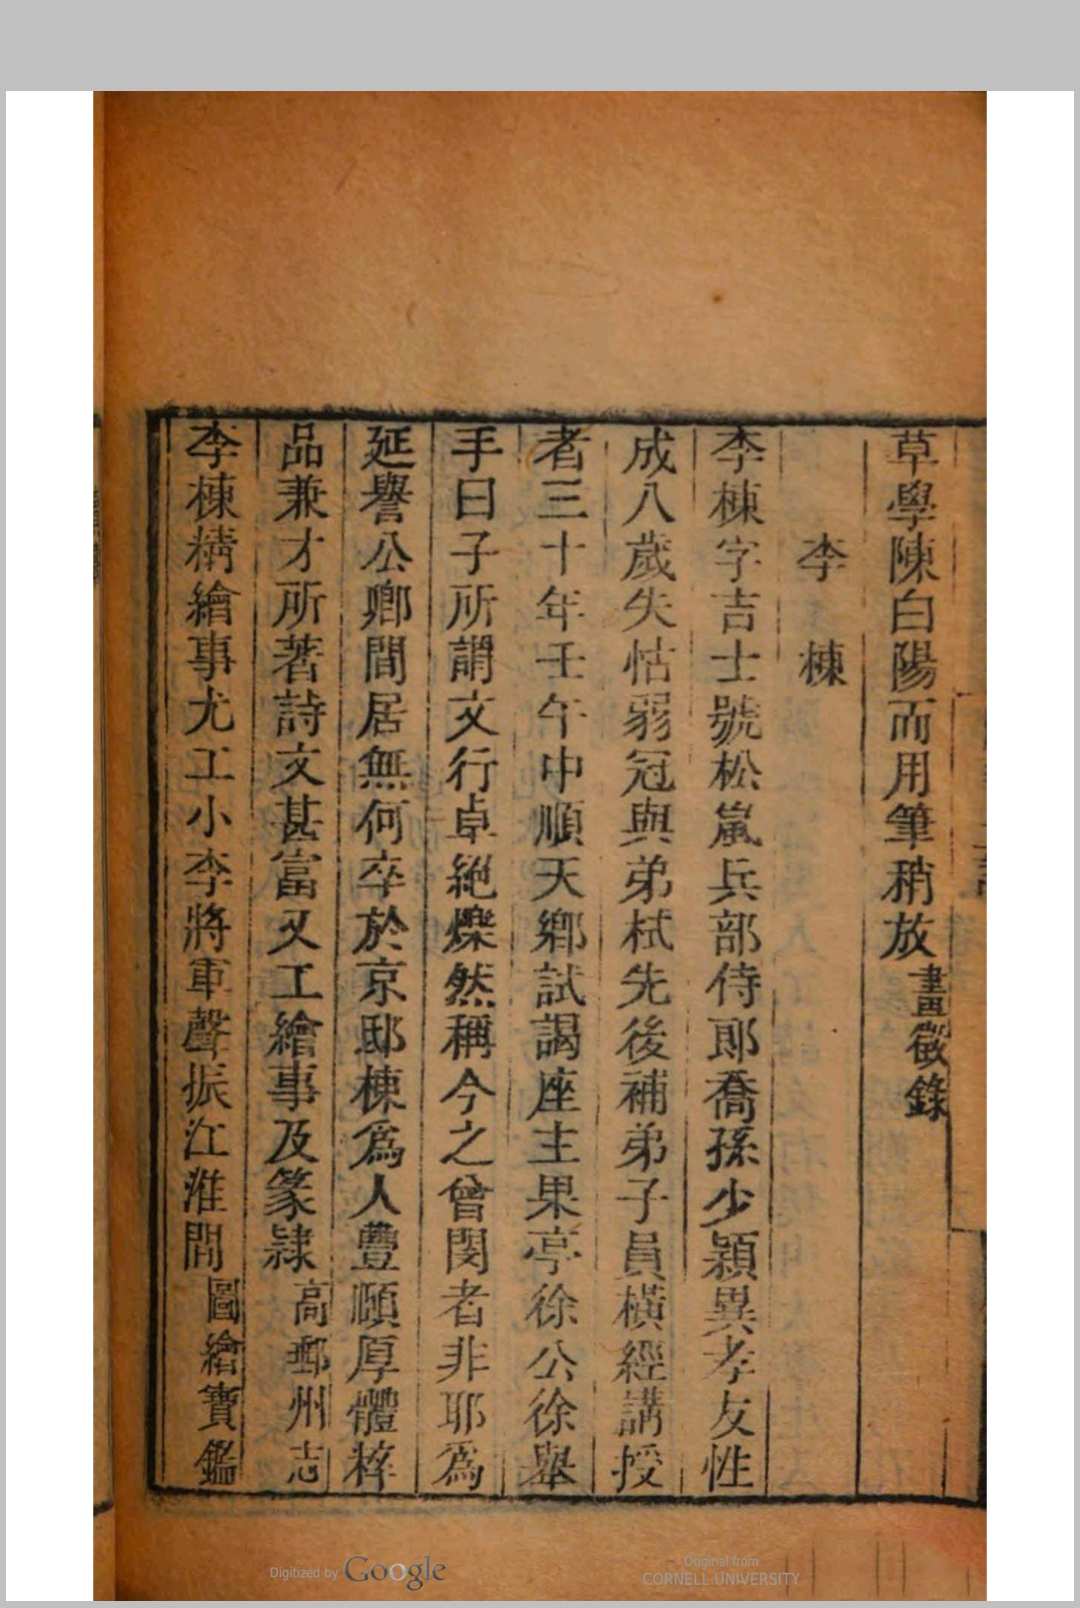 草學陳白陽而用筆稍放畫徵錄
李棟
李棟字吉士號松嵐兵部侍郎喬孫少穎異孝友性
成八歲失怙弱冠與弟栻先後補弟子員橫經講授
者三十年壬午中順天鄉試謁座主果亭徐公徐舉
手曰子所謂文行卓絕爍然稱今之曾閔者非耶爲
延譽公卿間居無何卒於京邸棟爲人豐頤厚體粹
品兼才所著詩文甚富又工繪事及篆隷高郵州志
李棟精繪事尤工小李將軍聲振江淮間圖繪寶鑑
Digitized by Google
Original from
CORNELL UNIVERSITY